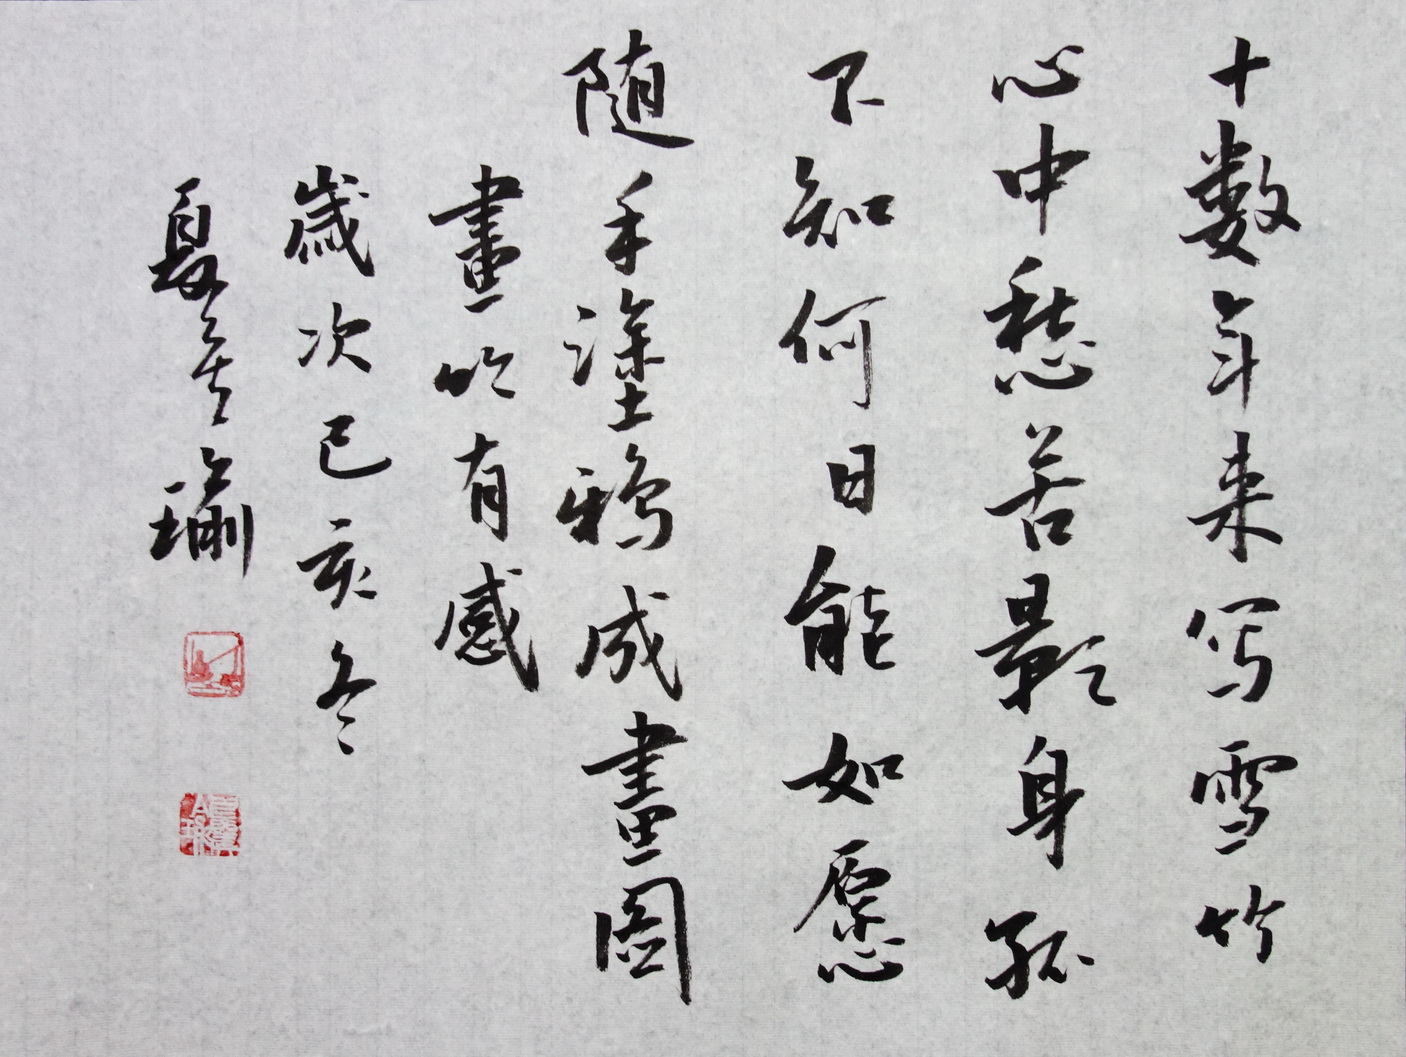 十数年来写雪竹
心中愁苦影身孤
不知何日能如愿
随手塗鴉成畫圖
畫竹有感
歲次己亥冬
夏 瑜